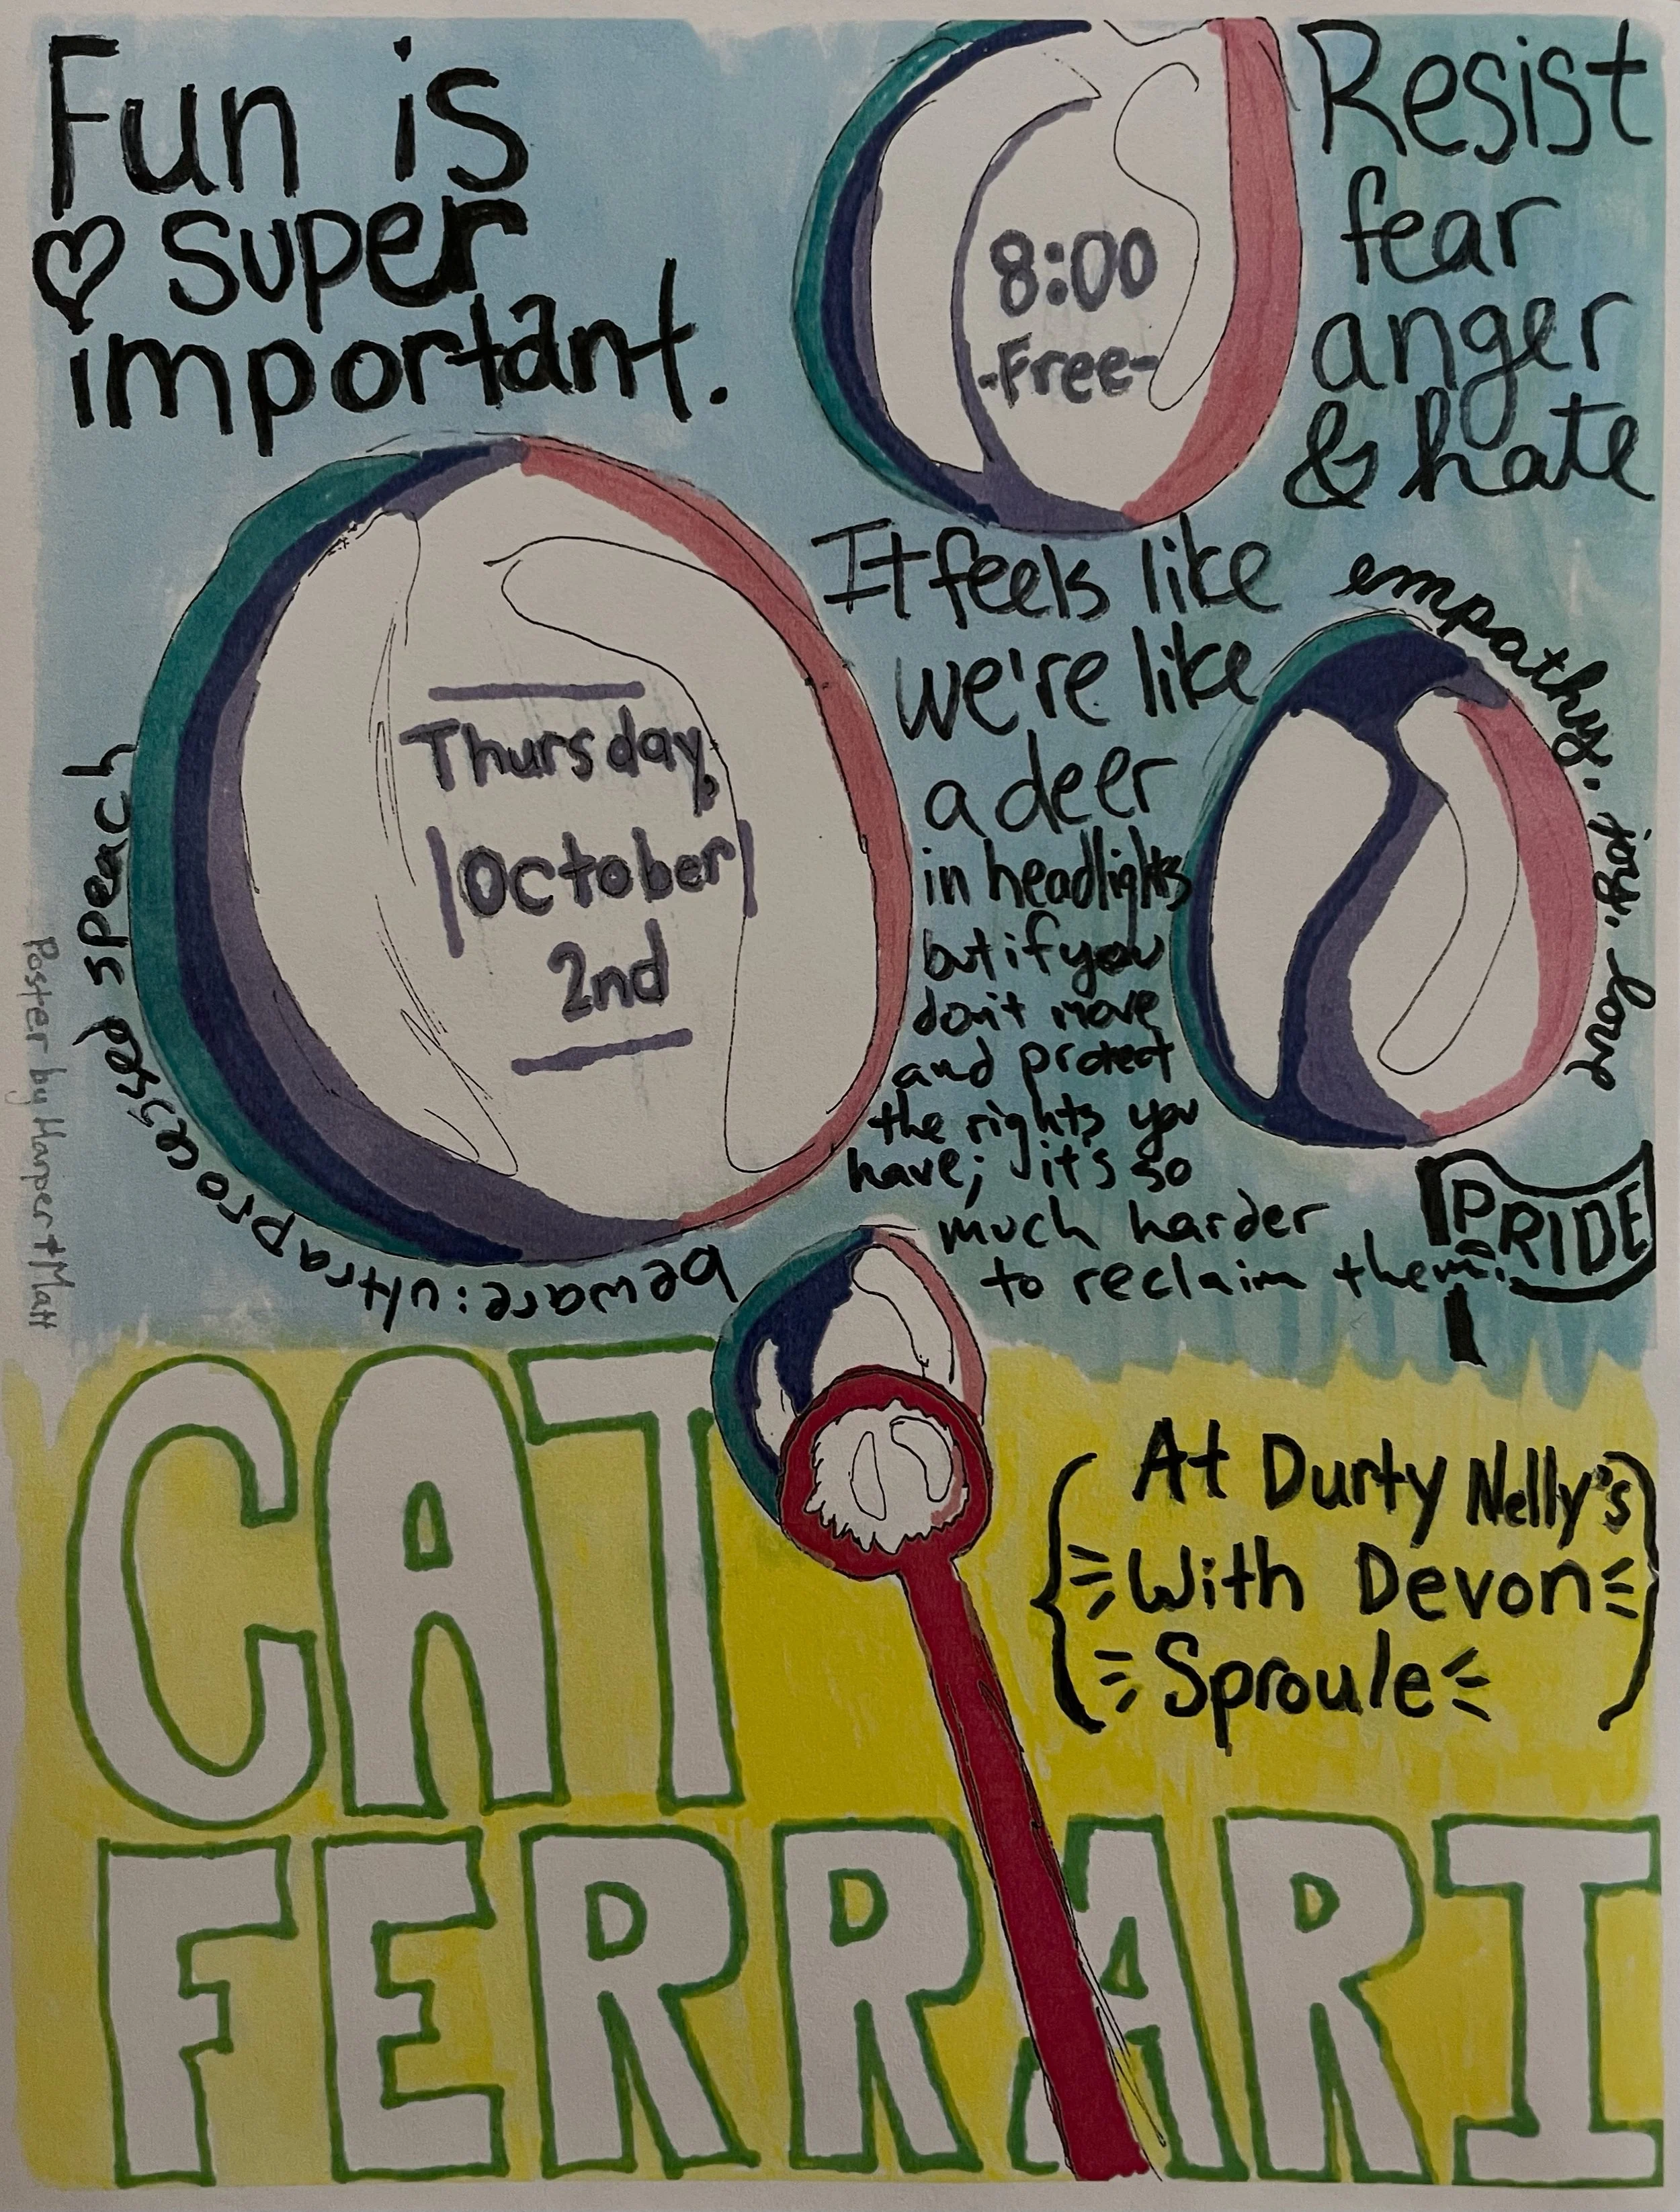 Fun is
super
important.
8:00
-Free-
Resist
fear
anger
& hate
Thursday,
October
2nd
It feels like
we're like
a deer
in headlights
but if you
don't move
and protect
the rights you
have; it's so
much harder
to reclaim them.
empathy. joy. love
PRIDE
beware: ultraprocessed speach
Poster by Harper + Matt
CAT
FERRARI
At Durty Nelly's
With Devon
Sproule